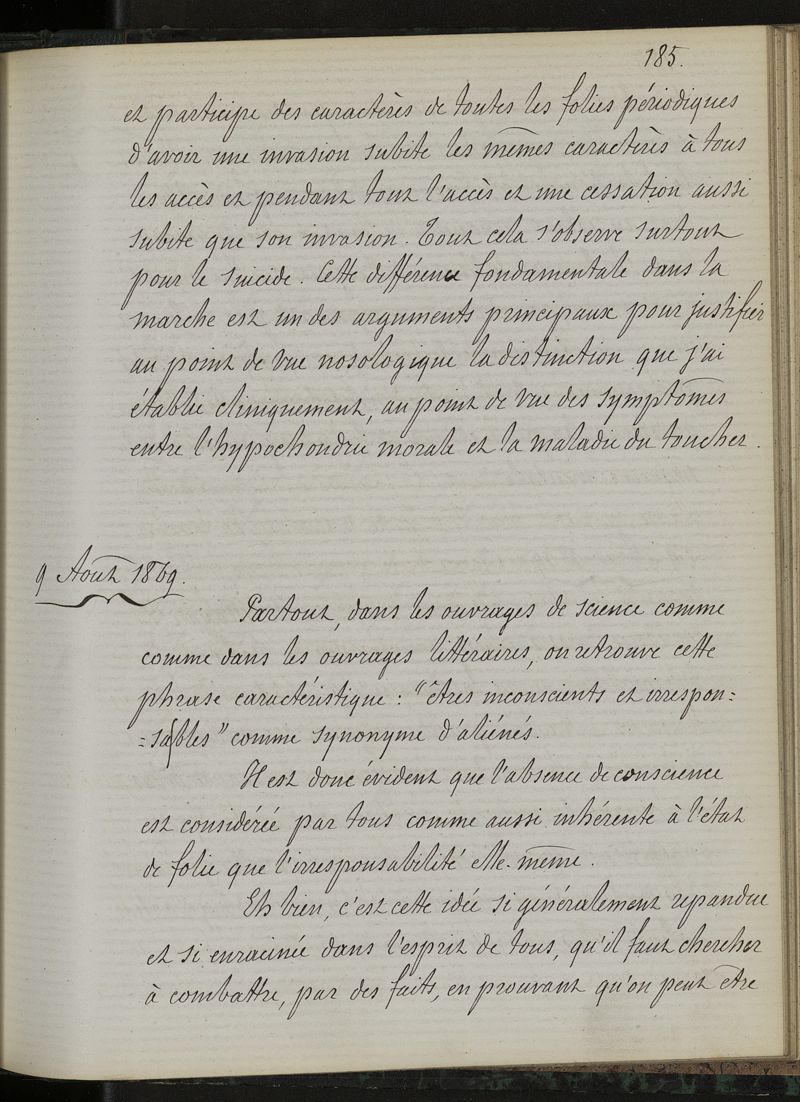 185.
et participe des caractères de toutes les folies périodiques
d'avoir une invasion subite les mêmes caractères à tous
les accès et pendant tout l'accès et une cessation aussi
subite que son invasion. Tout cela s'observe surtout
pour le suicide. Cette différence fondamentale dans la
marche est un des arguments principaux pour justifier
au point de vue nosologique la distinction que j'ai
établie cliniquement, au point de vue des symptômes
entre l'hypochondrie morale et la maladie du toucher.
9 Août 1869.
Partout, dans les ouvrages de science comme
comme dans les ouvrages littéraires, on retrouve cette
phrase caractéristique : "êtres inconscients et irrespon=
=sables" comme synonyme d'aliénés.
Il est donc évident que l'absence de conscience
est considérée par tous comme aussi inhérente à l'état
de folie que l'irresponsabilité elle-même.
Eh bien, c'est cette idée si généralement repandue
et si enracinée dans l'esprit de tous, qu'il faut chercher
à combattre, par des faits, en prouvant qu'on peut être